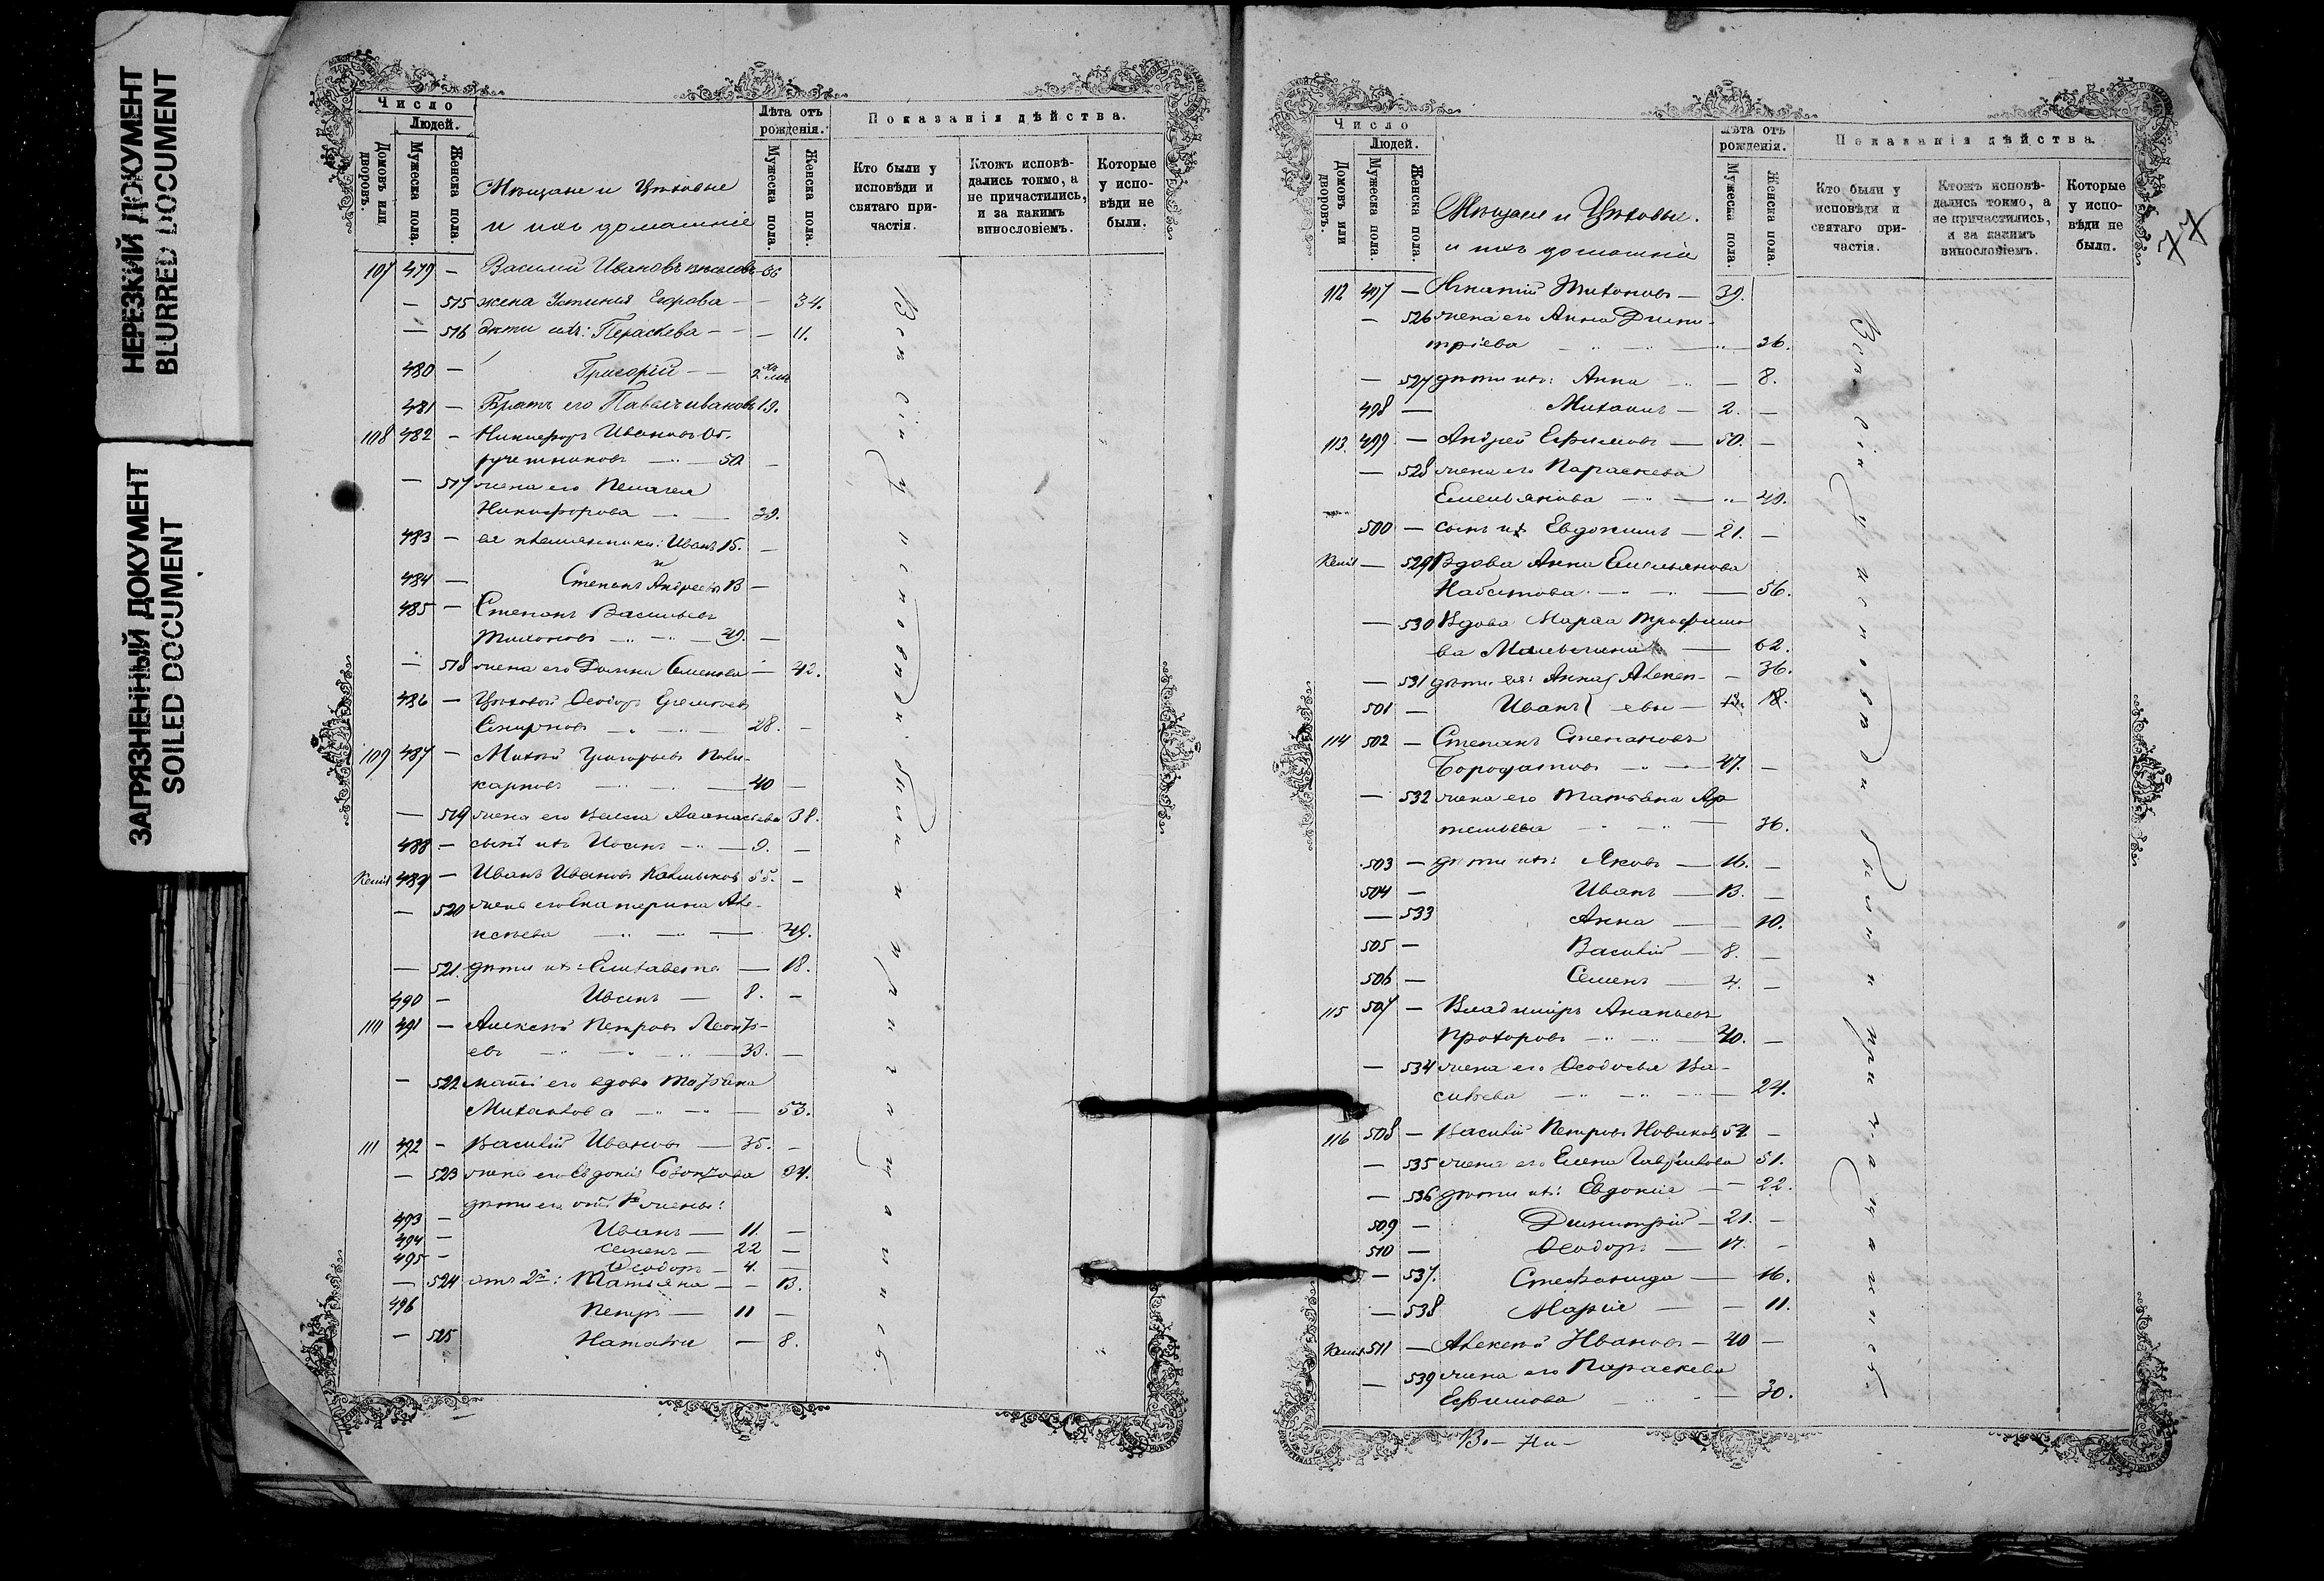 НЕРЕЗКИЙ ДОКУМЕНТ
BLURRED DOCUMENT
ЗАГРЯЗНЕННЫЙ ДОКУМЕНТ
SOILED DOCUMENT
Число
Людей.
Домовъ или дворовъ.
Мужеска пола.
Женска пола.
Мѣщане и Цѣховые
и ихъ домашніе
Лѣта отъ рожденія.
Мужеска пола.
Женска пола.
Показанія дѣйства.
Кто были у исповѣди и святаго причастія.
Ктожъ исповѣдались токмо, а не причастились, и за какимъ винословіемъ.
Которые у исповѣди не были.
107 479 — Василій Ивановъ 36
— 515 жена Устинья Егорова — — 34.
— 516 дѣти ихъ: Параскева — — — 11.
480 — Григорій — — 2
481 — Братъ его Павелъ Ивановъ 19.
108 482 — Никифоръ Ивановъ От-
ручениковъ — — 50. —
— 517 жена его Пелагея
Никифорова — — 39.
483 — ея племянники: Иванъ 15. —
и
484 — Степанъ Андреевы 13 —
485 — Степанъ Васильевъ
Тихоновъ — — — 49. —
— 518 жена его Домна Семенова — 42.
486 — Цѣховой Ѳеодоръ
Смирновъ — — 28. —
109 487 — Михей Григорьевъ Поли-
карповъ — — — 40 —
— 519 жена его Аѳанасьева 38.
488 — сынъ ихъ Иосифъ — — 9. —
489 — Иванъ Ивановъ Калмыковъ 55. —
— 520 жена его Екатерина Але-
ксѣева — — — 49.
— 521. дѣти ихъ: Елизавета — 18.
490 — Иванъ — 8. —
110 491 — Алексѣй Петровъ Леонть-
евъ — — — 33. —
— 522 мать его вдова Татьяна
Михайлова — — — 53.
111 492 — Василій Ивановъ — 35. —
— 523 жена его Евдокія Созонтова 34.
дѣти его отъ 1й жены:
493 — Иванъ — 11. —
494 — Семенъ — 22 —
495 — Ѳеодоръ — 4. —
— 524 отъ 2й: Татьяна — — 13.
496 Петръ — 11 —
— 525 Наталья — 8.
Вси сіи у исповѣди были и причащались.
77
Число
Людей.
Домовъ или дворовъ.
Мужеска пола.
Женска пола.
Мѣщане и Цѣховые.
и ихъ домашніе
Лѣта отъ рожденія.
Мужеска пола.
Женска пола.
Показанія дѣйства.
Кто были у исповѣди и святаго причастія.
Ктожъ исповѣдались токмо, а не причастились, и за какимъ винословіемъ.
Которые у исповѣди не были.
112 497 — Игнатій Тихоновъ — 39.
— 526 жена его Анна Дими-
тріева — — — 36.
— 527 дѣти ихъ: Анна — — 8.
498 — Михаилъ — 2. —
113. 499 — Андрей Ефимовъ — 50. —
— 528 жена его Параскева
Емельянова — — — 49.
500 — сынъ ихъ Евдокимъ — 21. —
— 529 Вдова Анна Емельянова
Набатова — — — 56.
— 530 Вдова Марѳа Трофимо
ва — 62.
— 531 дѣти ея: Анна Алексѣ- — 36.
501 — Иванъ евы — 18.
114 502 — Степанъ Степановъ
— — 47. —
— 532 жена его Татьяна Ар
темьева — — — 36.
503 — дѣти ихъ: Яковъ — 16. —
504 — Иванъ — 13. —
— 533 Анна — — 10.
505 — Василій — 8. —
506 — Семенъ — 4. —
115 507 — Владиміръ Ананьевъ
Прохоровъ — — — 40. —
— 534 жена его Ѳеодосья Ва-
сильева — — — 24.
116 508 — Василій Петровъ Новиковъ 52 —
— 535 жена его Елена Гаврилова 51.
— 536 дѣти ихъ: Евдокія — — 22.
509 — Димитрій — 21. —
510 — Ѳеодоръ — 17. —
— 537. Стефанида — 16.
— 538 Марія — — 11.
511 — Алексѣй Ивановъ — 40 —
— 539 жена его Параскева
Ефимова — — 30.
Вси сіи у исповѣди были и причащались.